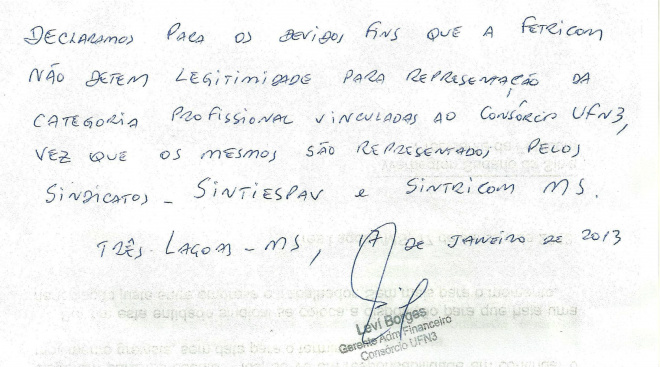 DECLARAMOS PARA OS DEVIDOS FINS QUE A FETRICOM
NÃO DETEM LEGITIMIDADE PARA REPRESENTAÇÃO DA
CATEGORIA PROFISSIONAL VINCULADAS AO CONSÓRCIO UFN3,
VEZ QUE OS MESMOS SÃO REPRESENTADOS PELOS
SINDICATOS - SINTIESPAV e SINTRICOM MS.
TRÊS-LAGOAS-MS, 17 DE JANEIRO DE 2013
Levi Borges
Gerente Adm Financeiro
Consórcio UFN3